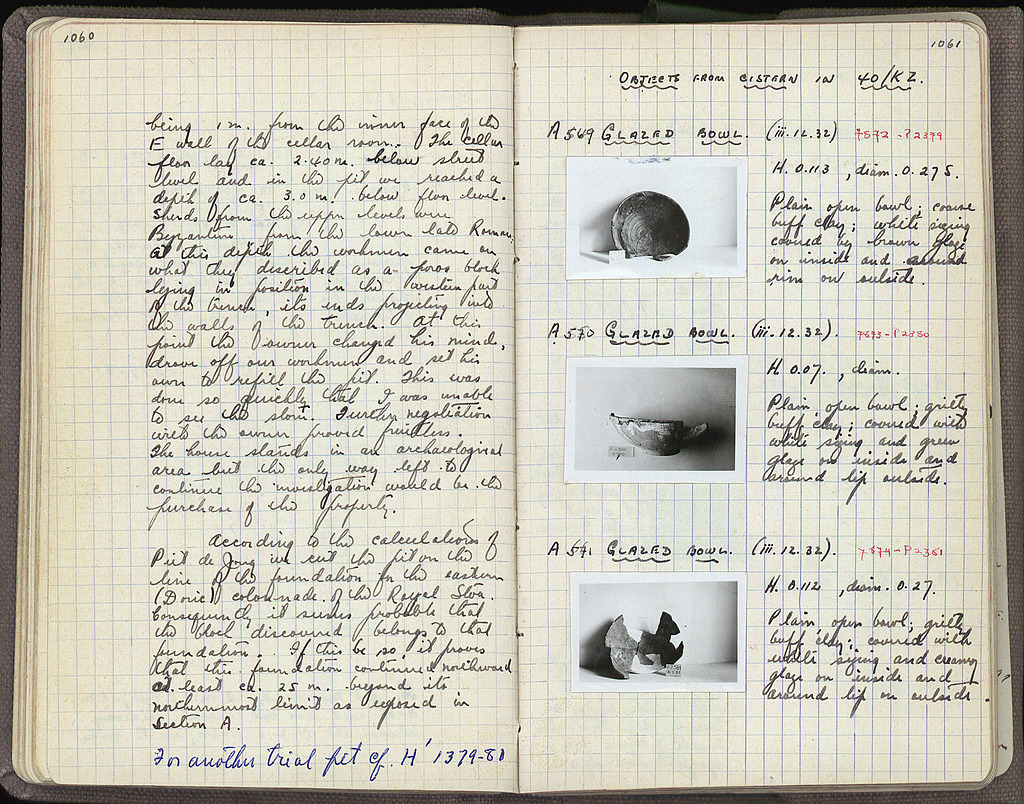 1060
being 1 m. from the inner face of the
E wall of the cellar room. The cellar
floor lay ca. 2.40 m. below street
level and in the pit we reached a
depth of ca. 3.0 m. below floor level.
Sherds from the upper levels were
Byzantine from the lower late Roman.
At this depth the workmen came on
what they described as a poros block
lying in position in the western part
of the trench, its ends projecting into
the walls of the trench. At this
point the owner changed his mind,
drove off our workmen and set his
own to refill the pit. This was
done so quickly that I was unable
to see the stone. Further negotiation
with the owner proved fruitless.
The house stands in an archaeological
area but the only way left to
continue the investigation would be the
purchase of the property.
According to the calculations of
Piet de Jong we cut the pit on the
line of the foundation for the eastern
(Doric) colonnade of the Royal Stoa.
Consequently it seems probable that
the block discovered belongs to that
foundation. If this be so, it proves
that this foundation continued northward
at least ca. 25 m. beyond its
northernmost limit as exposed in
Section A.
For another trial pit cf. H' 1379-80
1061
OBJECTS FROM CISTERN IN 40/KZ.
A 569 GLAZED BOWL. (iii.12.32) 7872 - P2379
H. 0.113, diam. 0.275.
Plain open bowl; coarse
buff clay; white sizing
covered by brown glaze
on inside and around
rim on outside.
A 570 GLAZED BOWL. (iii.12.32). 7873 - P2380
H. 0.07. , diam.
Plain open bowl; gritty
buff clay; covered with
white sizing and green
glaze on inside and
around lip outside.
A 571 GLAZED BOWL. (iii.12.32). 7874 - P2381
H. 0.112, diam. 0.27.
Plain open bowl; gritty
buff clay; covered with
white sizing and creamy
glaze on inside and
around lip on outside.